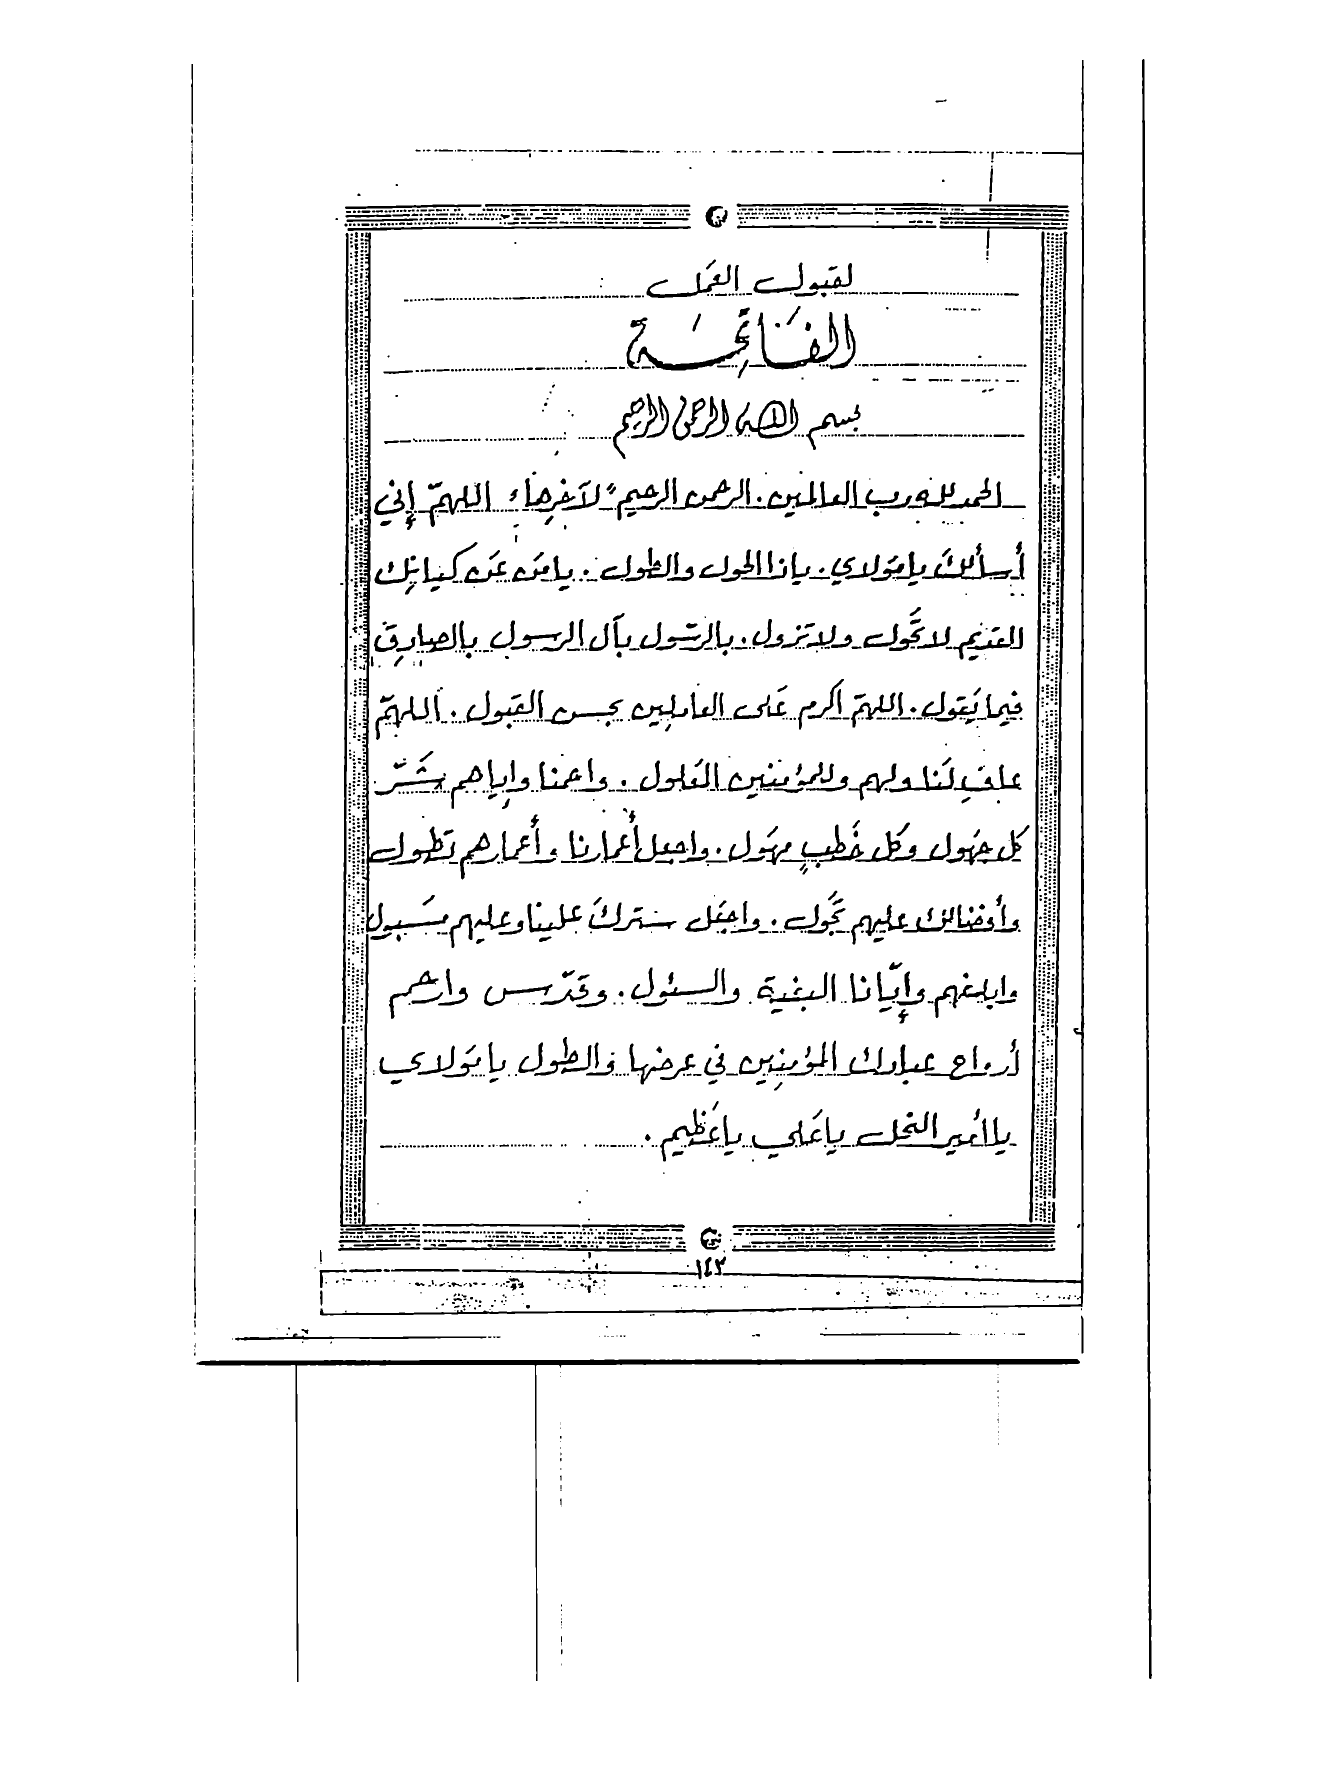 لقبول العمل
الفَاتِحَة
بسم الله الرحمن الرحيم
الحمد لله رب العالمين. الرحمن الرحيم "لآخرها" اللهمّ إني
أسألك يا مَولاي. يا ذا الحول والطول. يا مَن عَن كيانِك
القديم لا تحَّول ولا تزول. بالرسّول بآل الرسول بالصادِق
فيما يَقول. اللهمّ اكرم عَلى العامِلين بحسن القبول. اللهمّ
عافِ لَنا ولهم وللمؤمنين المَعلول. واحمنا وإياهم شَرّ
كل جهَول وكل خَطبٍ مهَول. واجعل أعمارنا وأعمارهم تطول
وأفضالك عليهم تجَّول. واجعَل سترك علينا وعليهم مسَبول
وابلغهم وإيّانا البغية والسئول. وقدّس وارحم
أرواح عبادك المؤمنِين في عرضها والطول يا مَولاي
يا أمير النحل يا عَلي يا عَظيم.
١٤٣